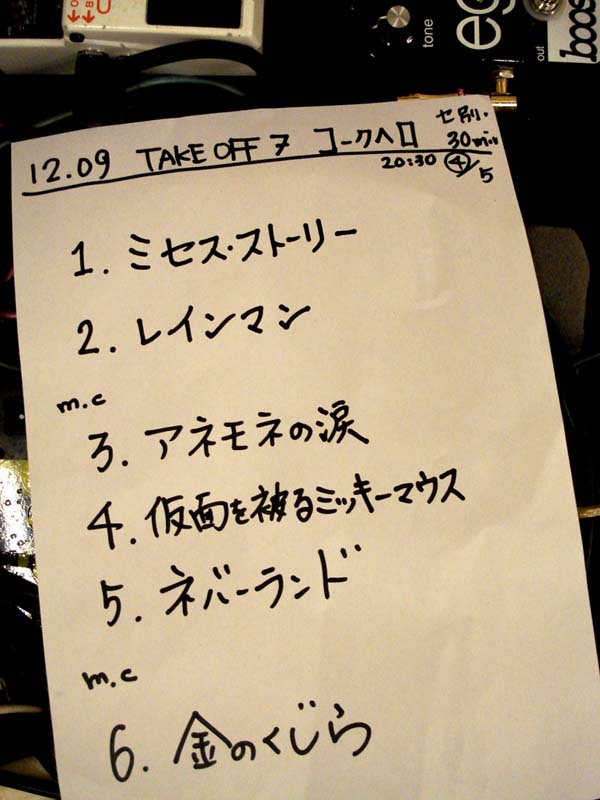 tone
eg
out
boos
12.09 TAKE OFF 7 コークヘロ セ別・30min
20:30 ④/5
1. ミセス・ストーリー
2. レインマン
m.c
3. アネモネの涙
4. 仮面を被るミッキーマウス
5. ネバーランド
m.c
6. 金のくじら